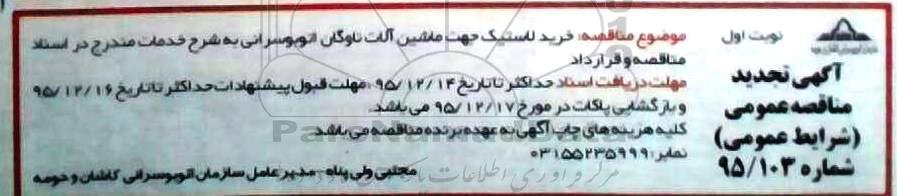 نوبت اول
آگهی تجدید
مناقصه عمومی
(شرایط عمومی)
شماره ۹۵/۱۰۳
موضوع مناقصه: خرید لاستیک جهت ماشین آلات ناوگان اتوبوسرانی به شرح خدمات مندرج در اسناد
مناقصه و قرارداد
مهلت دریافت اسناد حداکثر تا تاریخ ۹۵/۱۲/۱۴، مهلت قبول پیشنهادات حداکثر تا تاریخ ۹۵/۱۲/۱۶
و بازگشایی پاکات در مورخ ۹۵/۱۲/۱۷ می باشد.
کلیه هزینه های چاپ آگهی به عهده برنده مناقصه می باشد.
نمابر: ۰۳۱۵۵۲۳۵۹۹۹
مجتبی ولی پناه - مدیر عامل سازمان اتوبوسرانی کاشان و حومه